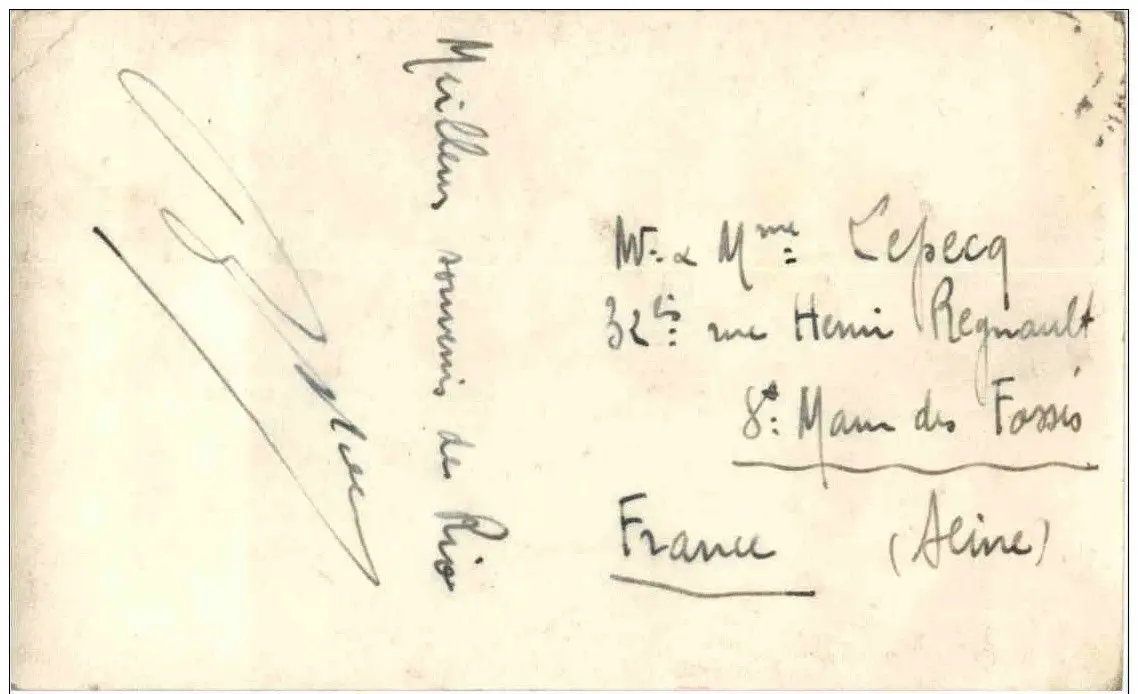 Meilleurs souvenirs de Rio
Mr. & Mme Lepecq
32bis rue Henri Regnault
St. Maur des Fossés
France (Seine)